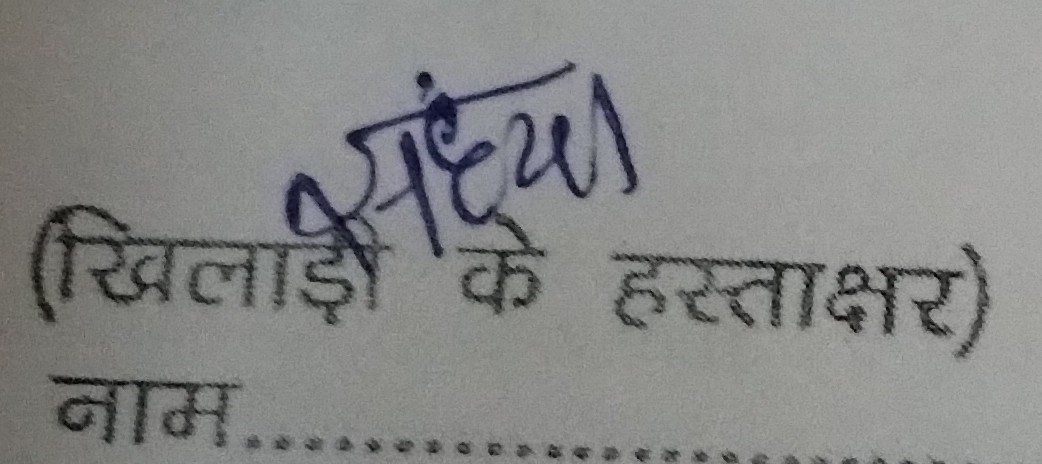 संध्या
(खिलाड़ी के हस्ताक्षर)
नाम....................